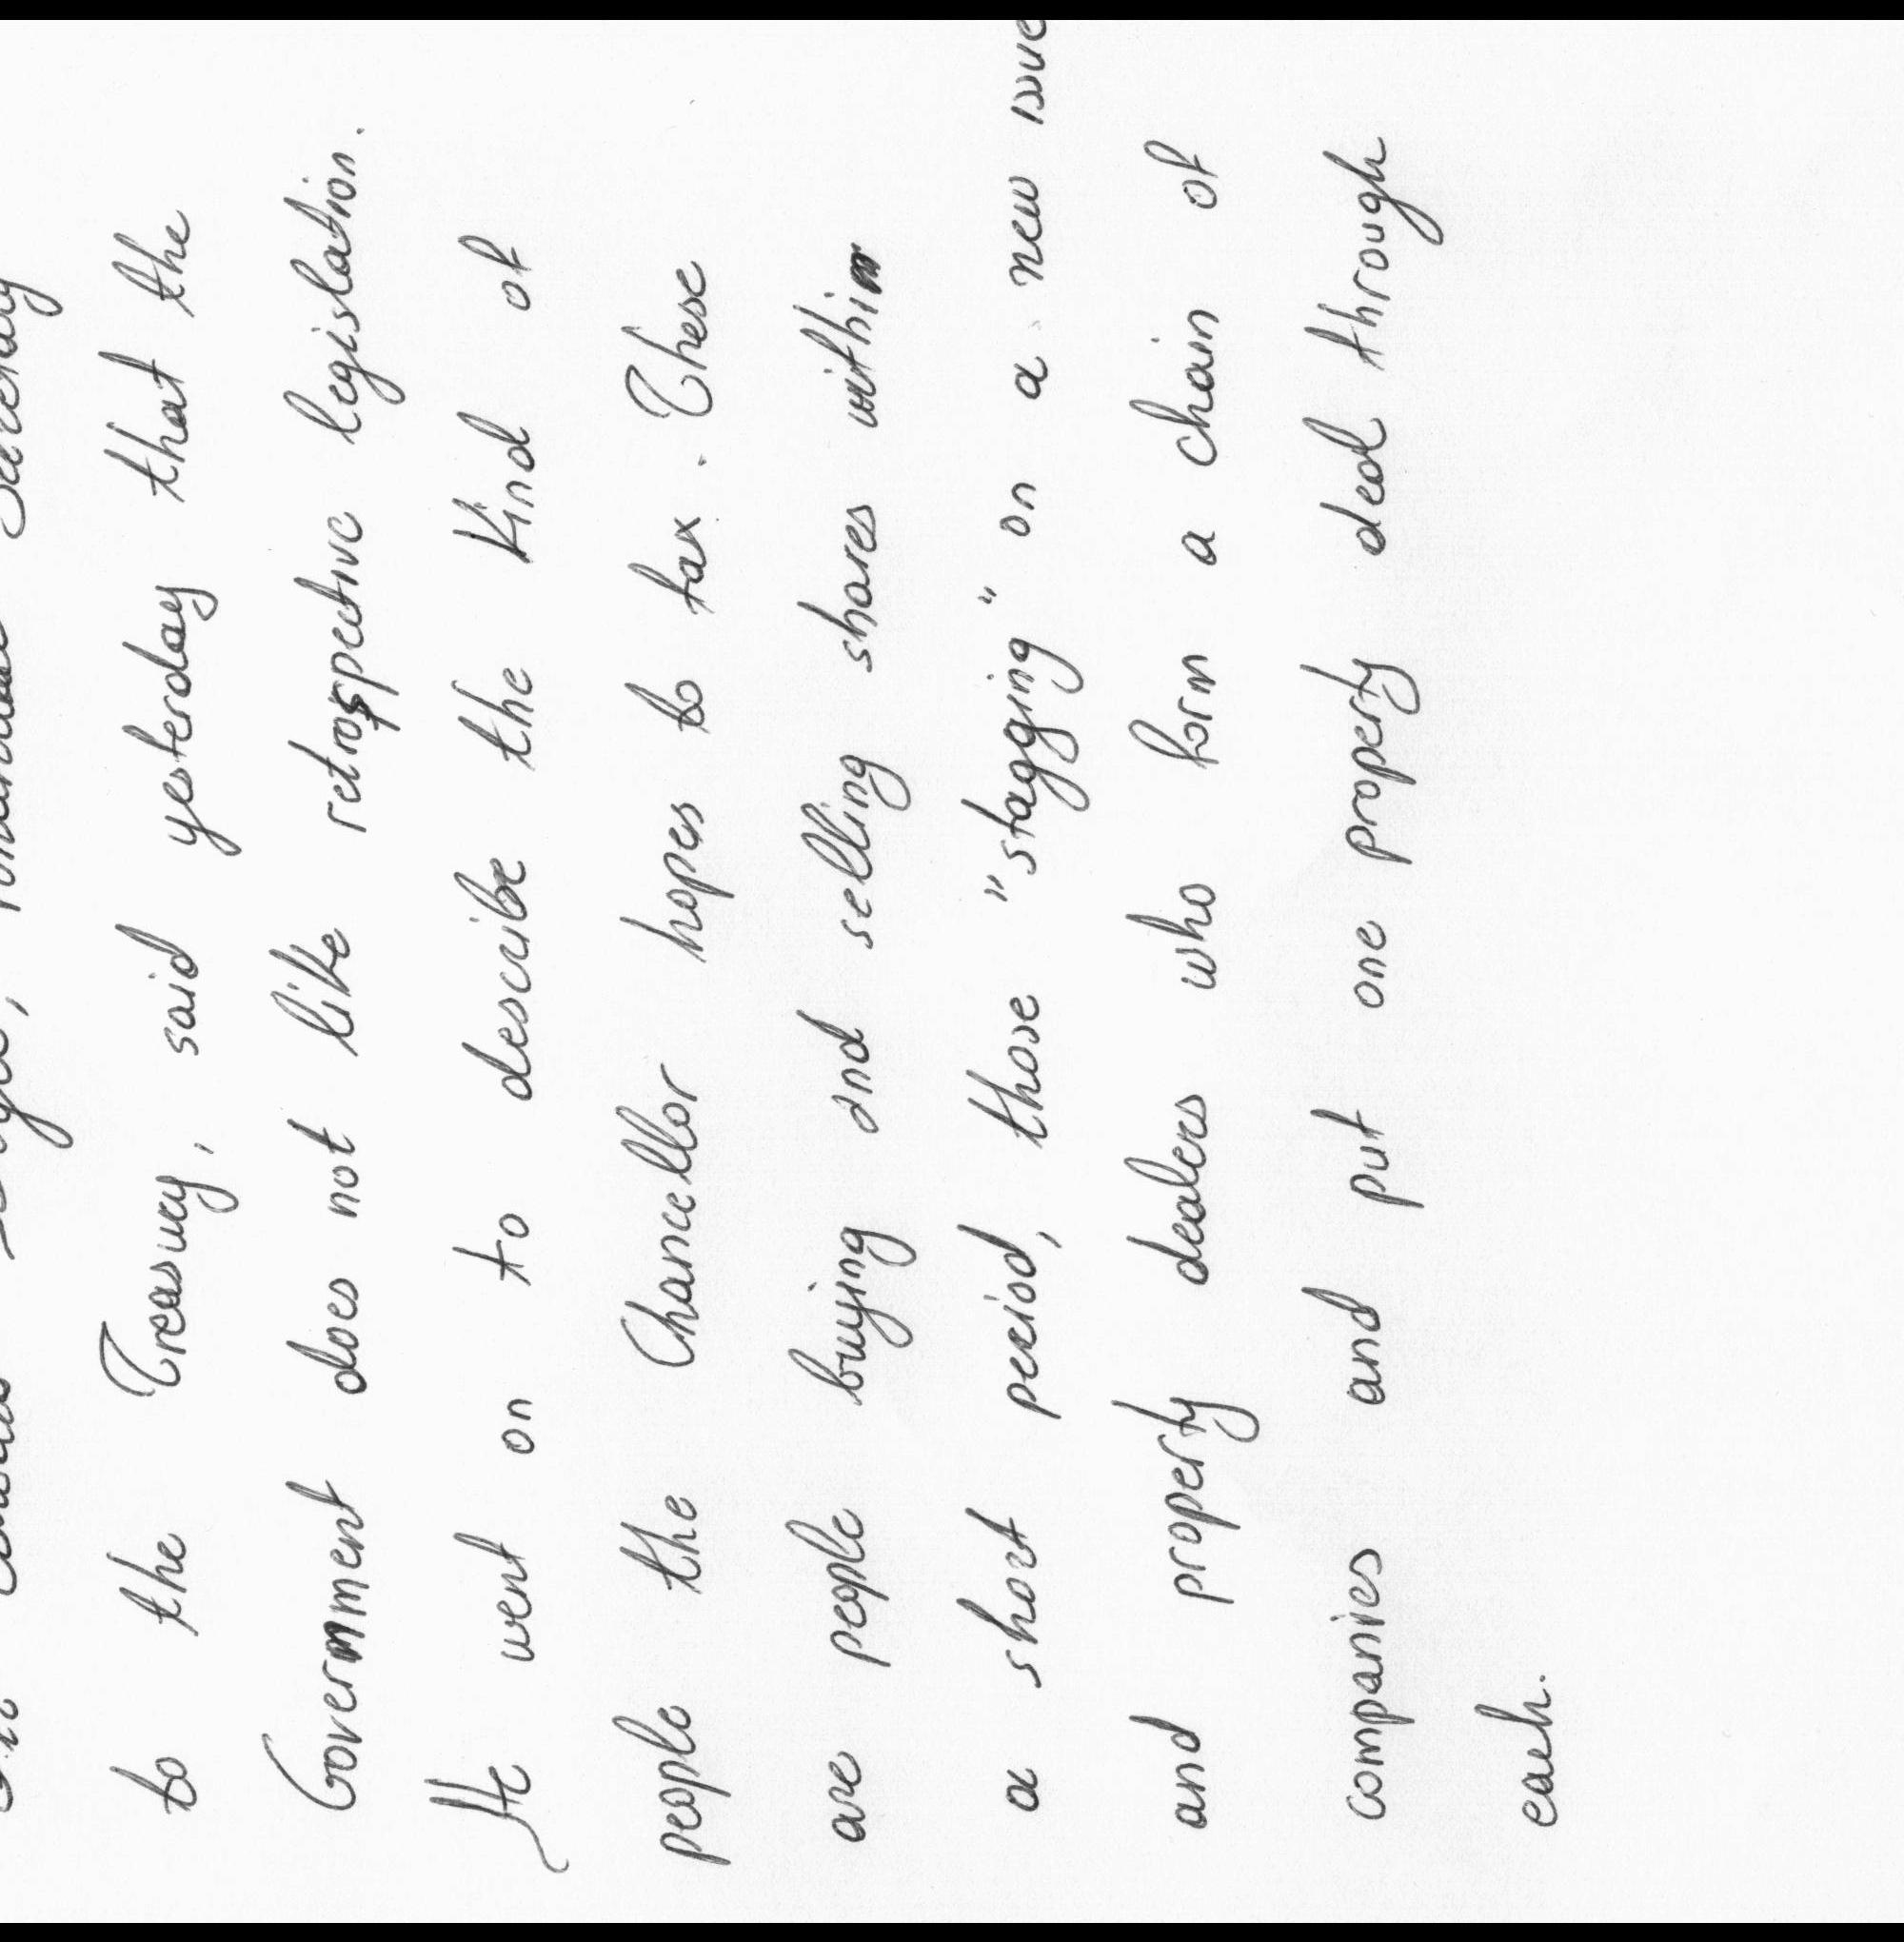 Secretary
to the Treasury, said yesterday that the
Government does not like retrospective legislation.
He went on to describe the kind of
people the Chancellor hopes to tax. These
are people buying and selling shares within
a short period, those "stagging" on a new issue
and property dealers who form a chain of
companies and put one property deal through
each.